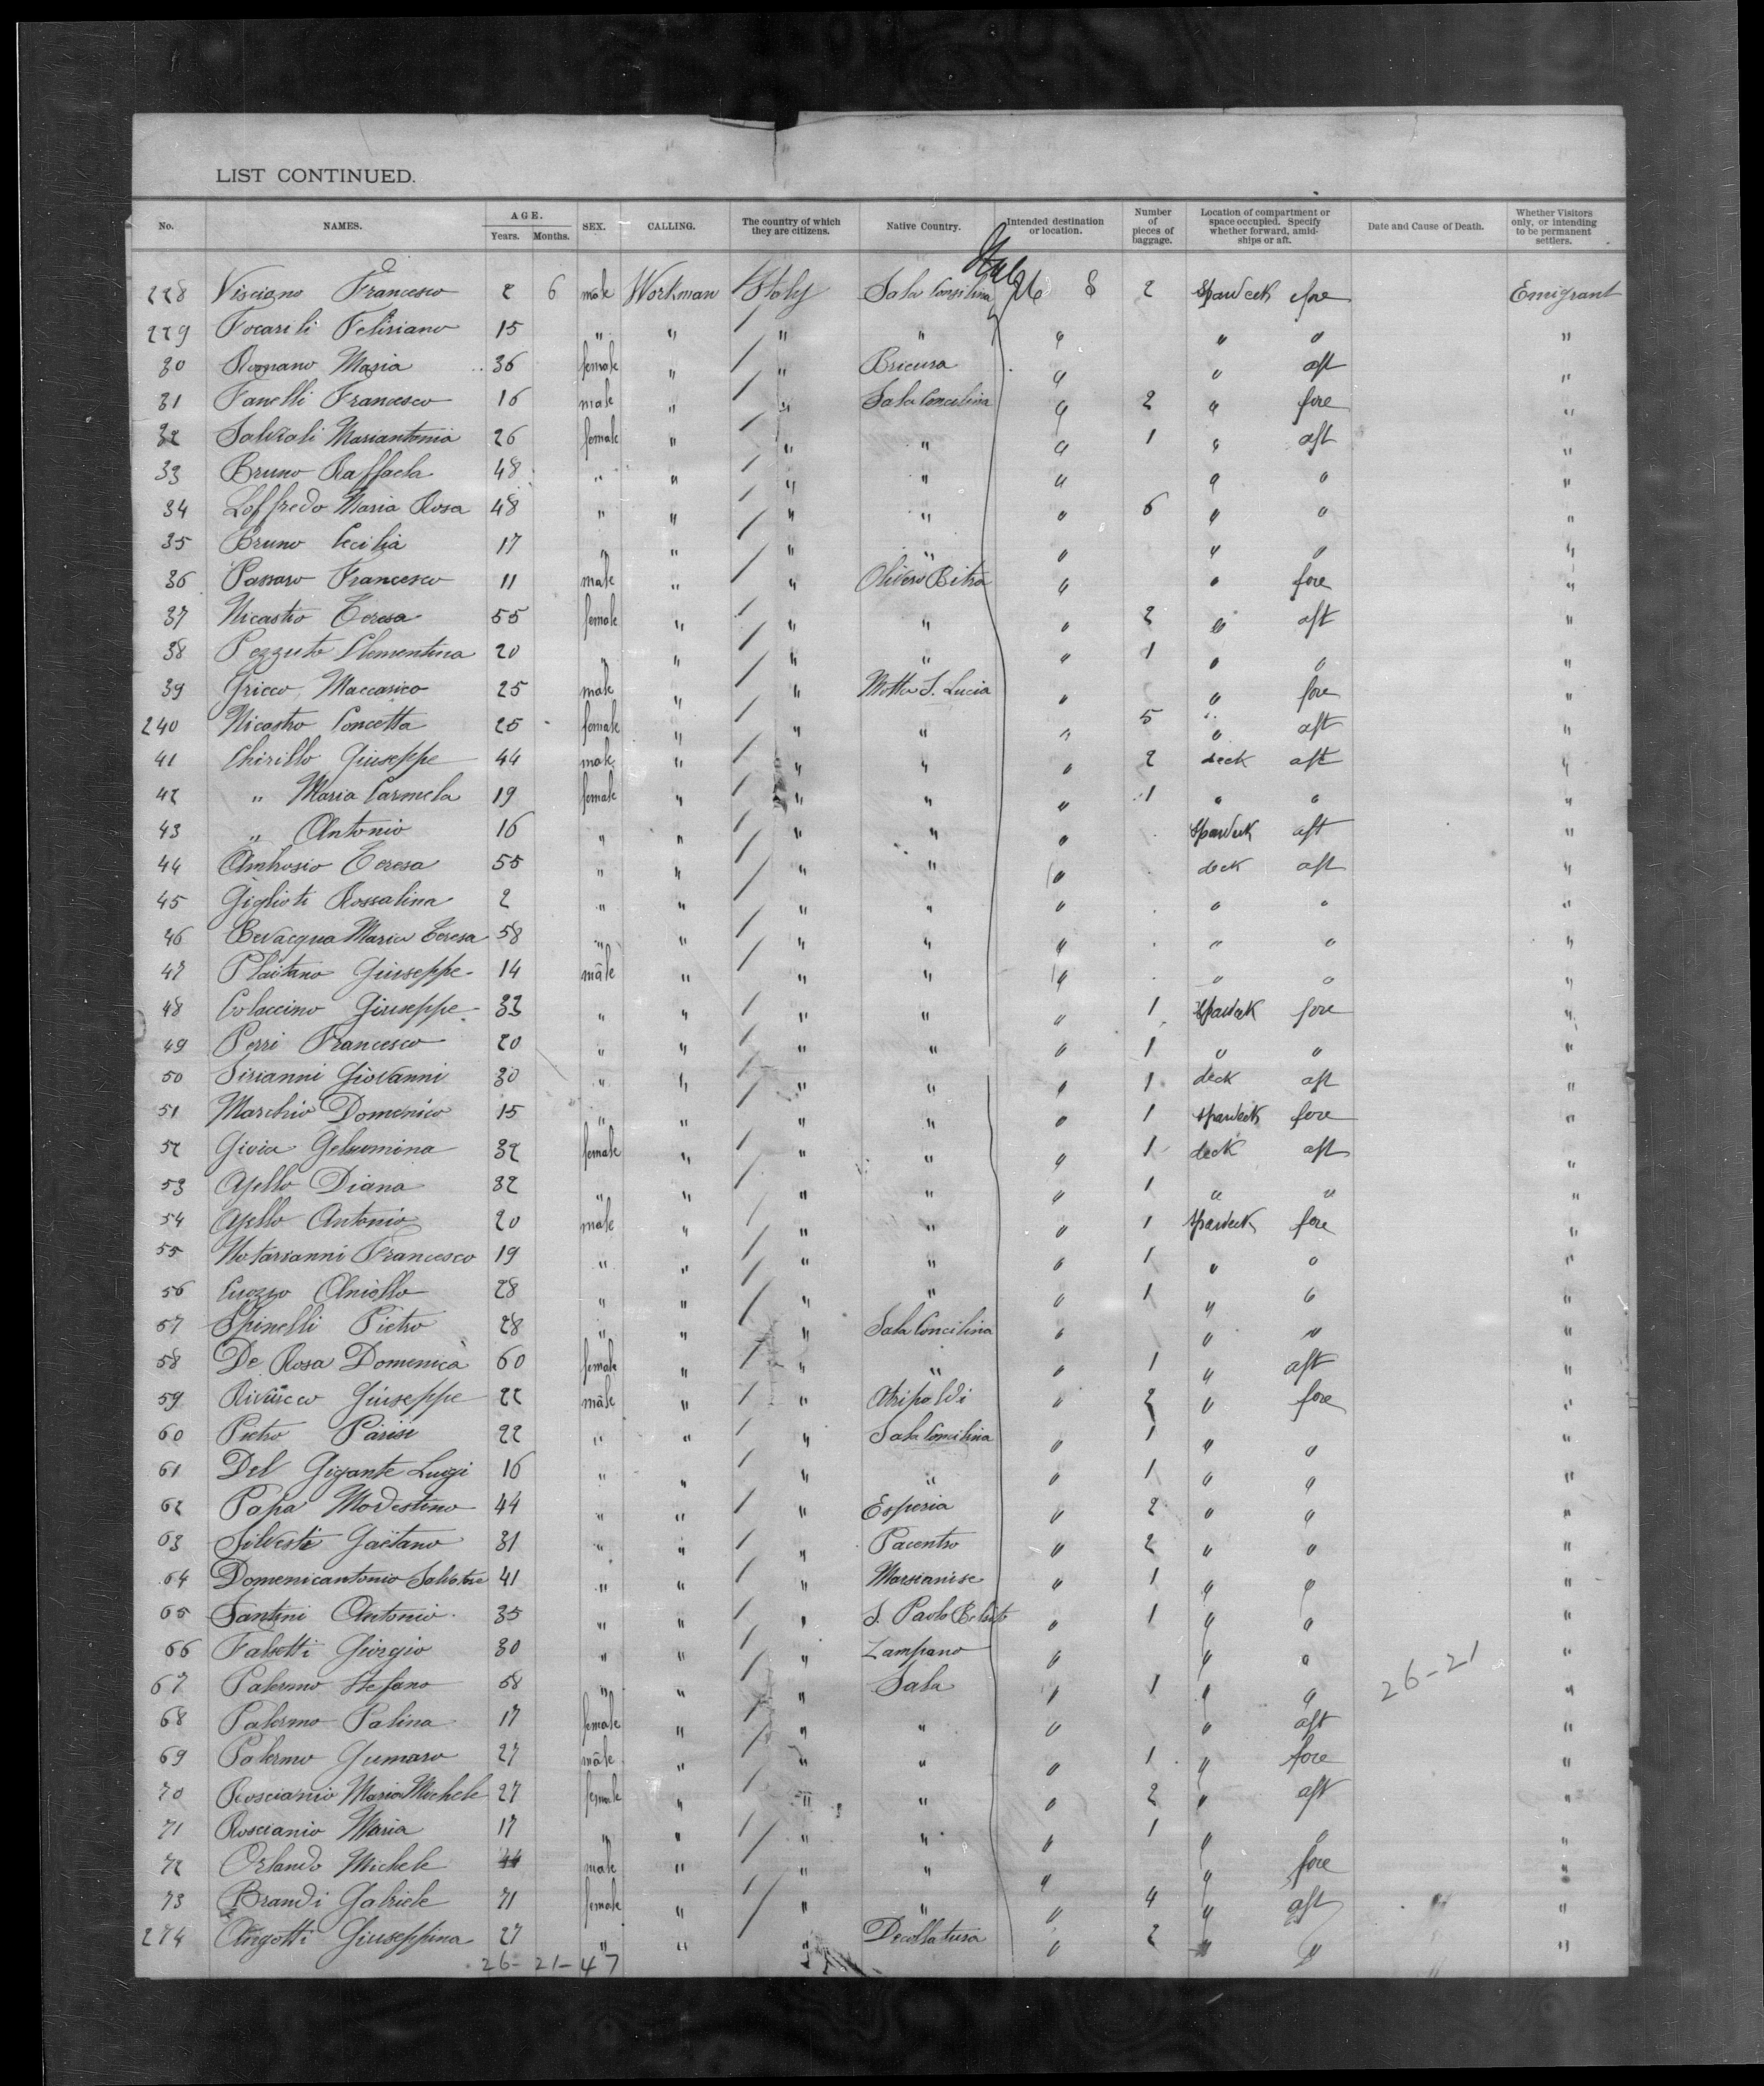 LIST CONTINUED.
No. NAMES. AGE. Years. Months. SEX. CALLING. The country of which they are citizens. Native Country. Intended destination or location. Number of pieces of baggage. Location of compartment or space occupied. Specify whether forward, amidships or aft. Date and Cause of Death. Whether Visitors only, or intending to be permanent settlers.
228 Visciano Francesco 2 6 male Workman Italy Sala Consilina 2 Spardeck fore Emigrant
229 Focarili Feliriano 15 " " " " " " " "
30 Romano Maria 36 female " " Bricura " " aft "
31 Fanelli Francesco 16 male " " Sala Concilina " 2 " fore "
32 Salviali Mariantonia 26 female " " " " 1 " aft "
33 Bruno Raffaela 48 " " " " " " " "
34 Loffredo Maria Rosa 48 " " " " " 6 " " "
35 Bruno Cecilia 17 " " " " " " " "
36 Passaro Francesco 11 male " " Olivero Bitra " " fore "
37 Nicastro Teresa 55 female " " " " 2 " aft "
38 Pezzuto Clementina 20 " " " " " 1 " " "
39 Gricco Maccarico 25 male " " Motta S. Lucia " " fore "
240 Nicastro Concetta 25 female " " " " 5 " aft "
41 Chirillo Giuseppe 44 male " " " " 2 deck aft "
42 " Maria Carmela 19 female " " " " 1 " " "
43 " Antonio 16 " " " " " Spardeck aft "
44 Ambrosio Teresa 55 " " " " " deck aft "
45 Giglioti Rossalina 2 " " " " " " " "
46 Bevacqua Maria Teresa 58 " " " " " " " "
47 Plaitano Giuseppe 14 male " " " " " " "
48 Colaccino Giuseppe 33 " " " " " 1 Spardeck fore "
49 Perri Francesco 20 " " " " " 1 " " "
50 Sirianni Giovanni 30 " " " " " 1 deck aft "
51 Marchio Domenico 15 " " " " " 1 spardeck fore "
52 Givia Gelsumina 32 female " " " " 1 deck aft "
53 Ajello Diana 32 " " " " " 1 " " "
54 Ajello Antonio 20 male " " " " 1 Spardeck fore "
55 Notarianni Francesco 19 " " " " " 1 " " "
56 Cuozzo Aniello 28 " " " " " 1 " " "
57 Spinelli Pietro 28 " " " Sala Concilina " " " "
58 De Rosa Domenica 60 female " " " " 1 " aft "
59 Rivüecco Giuseppe 22 male " " Atripaldi " 2 " fore "
60 Pietro Parisi 22 " " " Sala Concilina " 1 " " "
61 Del Gigante Luigi 16 " " " " " 1 " " "
62 Papa Modestino 44 " " " Esperia " 2 " " "
63 Silvestri Gaetano 31 " " " Pacentro " 2 " " "
64 Domenicantonio Salvatore 41 " " " Marsianise " 1 " " "
65 Santini Antonio 35 " " " S. Paolo Belsito " 1 " " "
66 Falsetti Giorgio 30 " " " Zampano " " " "
67 Palermo Stefano 58 " " " Sala " 1 " " 26-21 "
68 Palermo Palina 17 female " " " " " aft "
69 Palermo Gumaro 27 male " " " " 1 " fore "
70 Roscianio Maria Michele 27 female " " " " 2 " aft "
71 Roscianio Maria 17 " " " " " 1 " " "
72 Orlando Michele 44 male " " " " " fore "
73 Brandi Gabriele 71 female " " " " 4 " aft "
274 Angotti Giuseppina 27 " " " Decollatura " 2 " " "
26- 21- 47